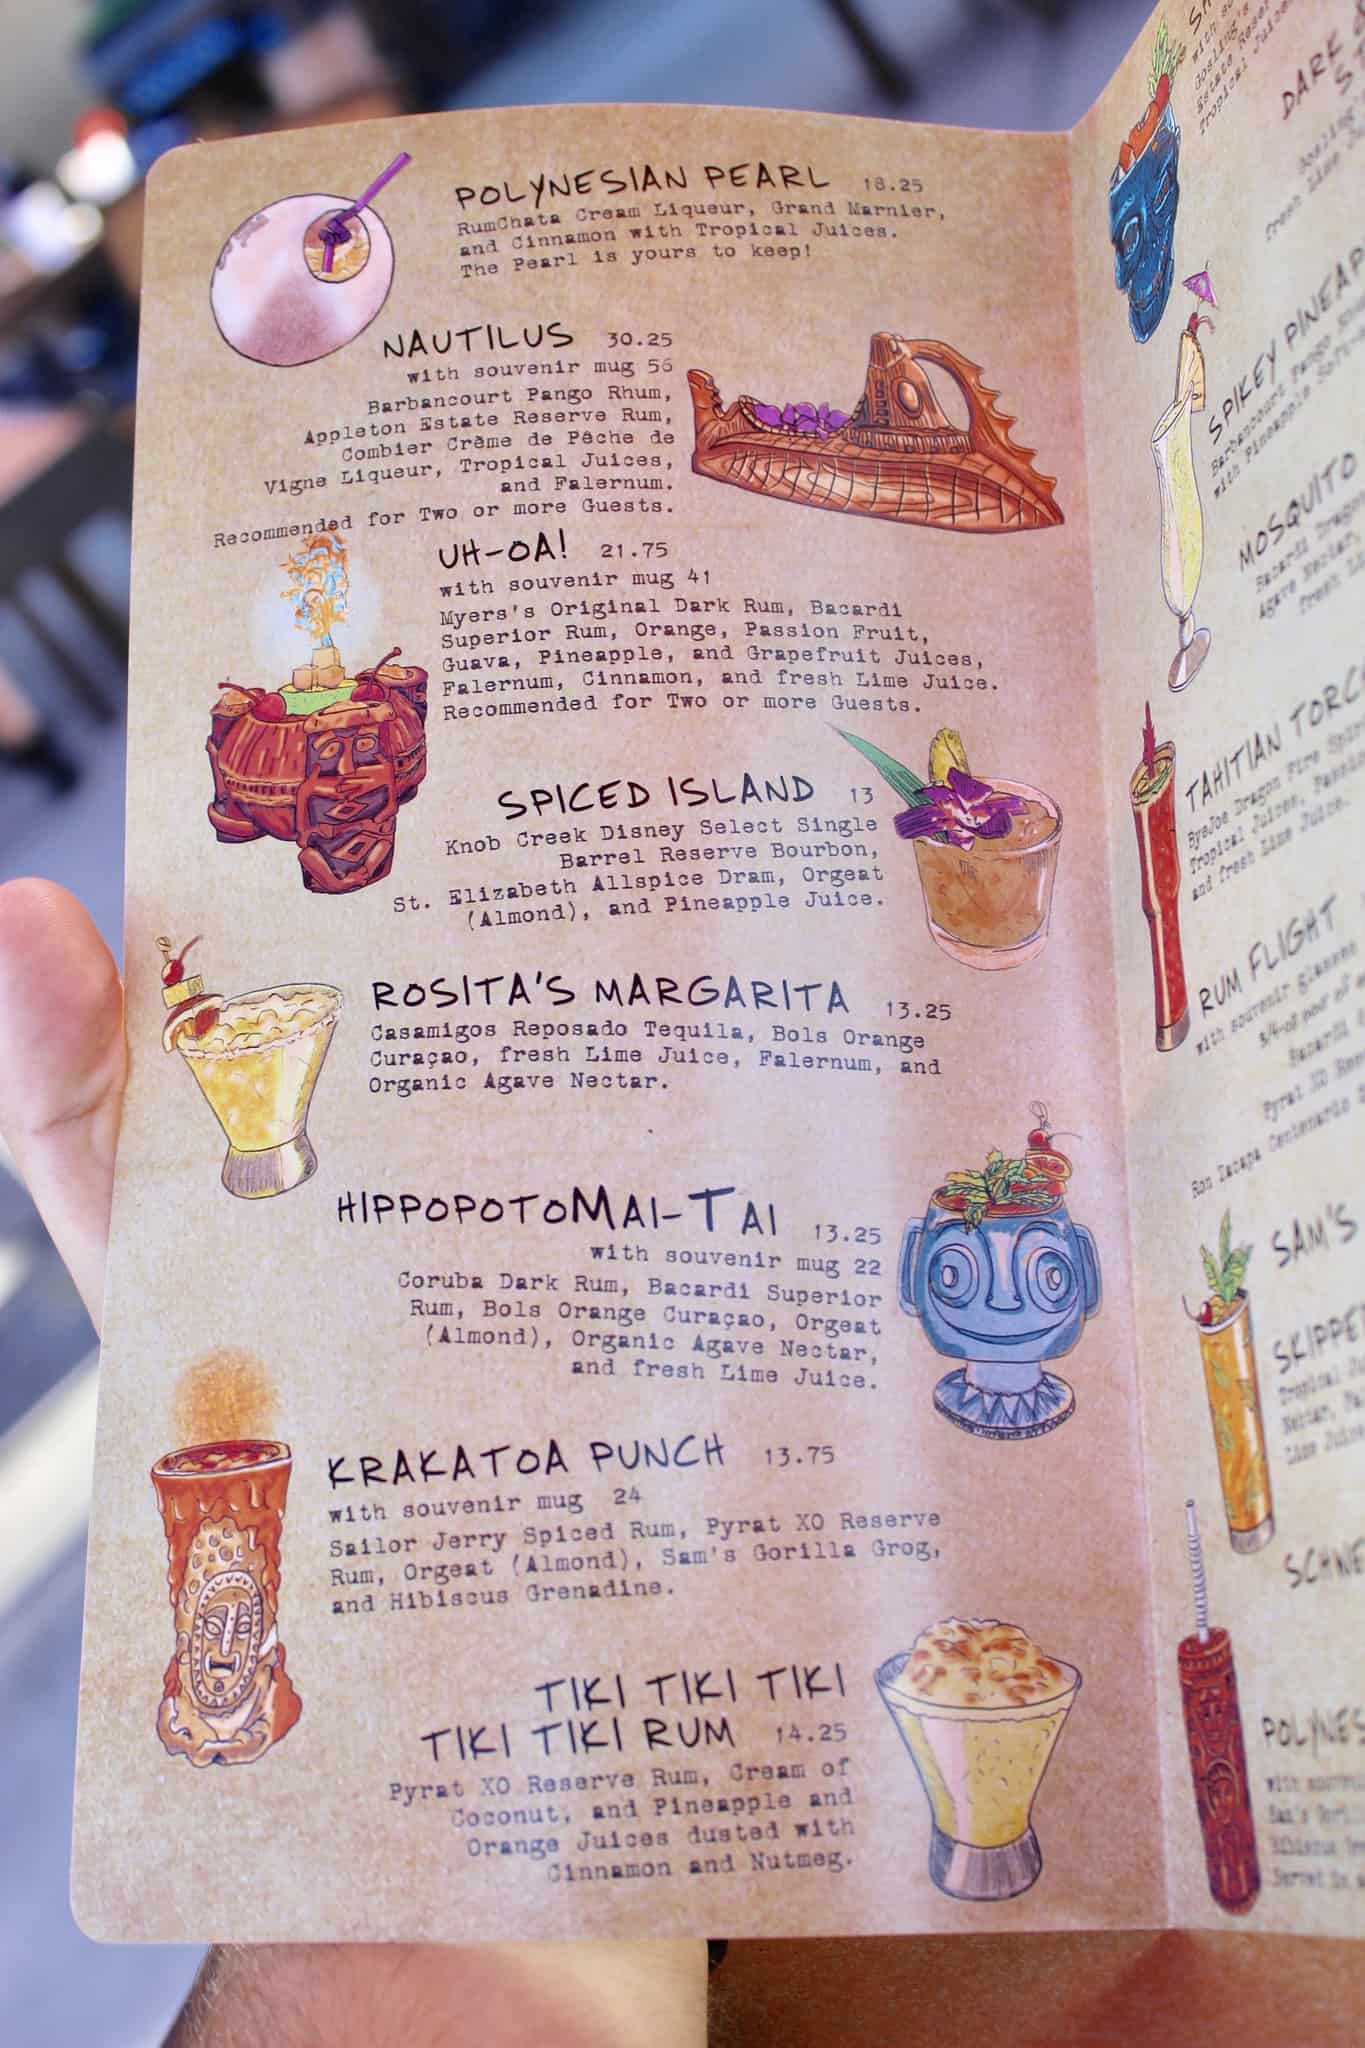 POLYNESIAN PEARL 18.25
RumChata Cream Liqueur, Grand Marnier,
and Cinnamon with Tropical Juices.
The Pearl is yours to keep!
NAUTILUS 30.25
with souvenir mug 56
Barbancourt Pango Rhum,
Appleton Estate Reserve Rum,
Combier Crème de Pêche de
Vigne Liqueur, Tropical Juices,
and Falernum.
Recommended for Two or more Guests.
UH-OA! 21.75
with souvenir mug 41
Myers's Original Dark Rum, Bacardi
Superior Rum, Orange, Passion Fruit,
Guava, Pineapple, and Grapefruit Juices,
Falernum, Cinnamon, and fresh Lime Juice.
Recommended for Two or more Guests.
SPICED ISLAND 13
Knob Creek Disney Select Single
Barrel Reserve Bourbon,
St. Elizabeth Allspice Dram, Orgeat
(Almond), and Pineapple Juice.
ROSITA'S MARGARITA 13.25
Casamigos Reposado Tequila, Bols Orange
Curaçao, fresh Lime Juice, Falernum, and
Organic Agave Nectar.
HIPPOPOTOMAI-TAI 13.25
with souvenir mug 22
Coruba Dark Rum, Bacardi Superior
Rum, Bols Orange Curaçao, Orgeat
(Almond), Organic Agave Nectar,
and fresh Lime Juice.
KRAKATOA PUNCH 13.75
with souvenir mug 24
Sailor Jerry Spiced Rum, Pyrat XO Reserve
Rum, Orgeat (Almond), Sam's Gorilla Grog,
and Hibiscus Grenadine.
TIKI TIKI TIKI
TIKI TIKI RUM 14.25
Pyrat XO Reserve Rum, Cream of
Coconut, and Pineapple and
Orange Juices dusted with
Cinnamon and Nutmeg.
DARK
fresh Lime
SPIKEY
Barbancourt Pango
with Pineapple
MOSQUITO
Bacardi
Agave Nectar,
fresh
TAHITIAN
ByeJoe Dragon Fire
Tropical Juices,
and fresh Lime Juice.
RUM FLIGHT
with souvenir glasses
Bacardi
Pyrat XO
Ron Zacapa Centenario
SAM'S
Tropical
Nectar,
Lime Juice